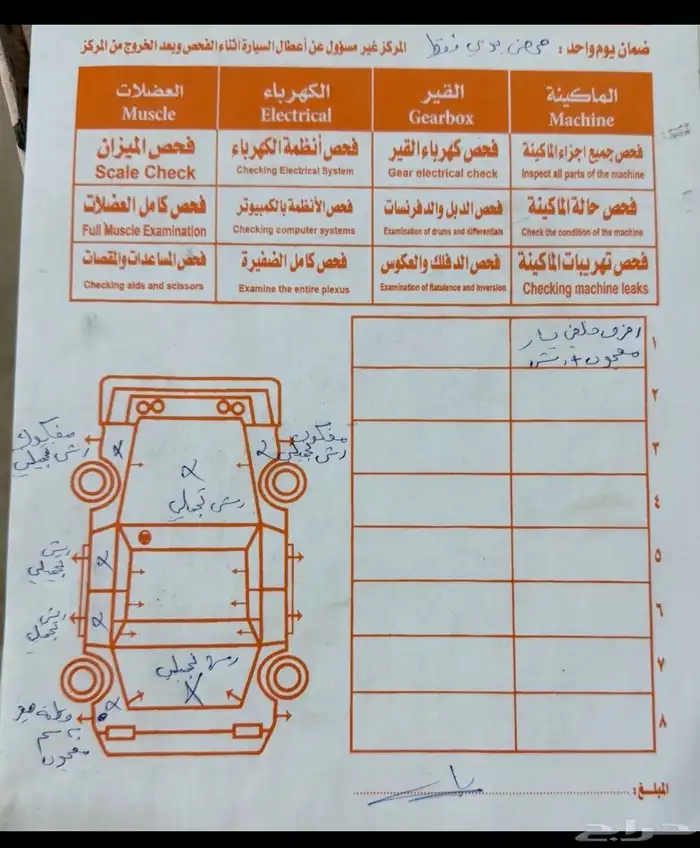 ضمان يوم واحد : فحص بودي فقط المركز غير مسؤول عن أعطال السيارة اثناء الفحص وبعد الخروج من المركز
الماكينة القير الكهرباء العضلات
Machine Gearbox Electrical Muscle
فحص جميع اجزاء الماكينة فحص كهرباء القير فحص أنظمة الكهرباء فحص الميزان
Inspect all parts of the machine Gear electrical check Checking Electrical System Scale Check
فحص حالة الماكينة فحص الدبل والدفرنسات فحص الأنظمة بالكمبيوتر فحص كامل العضلات
Check the condition of the machine Examination of drums and differentials Checking computer systems Full Muscle Examination
فحص تهريبات الماكينة فحص الدفلك والعكوس فحص كامل الضفيرة فحص المساعدات والمقصات
Checking machine leaks Examination of flatulence and inversion Examine the entire plexus Checking aids and scissors
١ رفرف خلفي يسار
معجون + رش
٢
٣
٤
٥
٦
٧
٨
مفكوك
رش تجميلي
مفكوك
رش تجميلي
رش تجميلي
رش
تجميلي
رش
تجميلي
رش تجميلي
معجون
المبلغ :
حراج